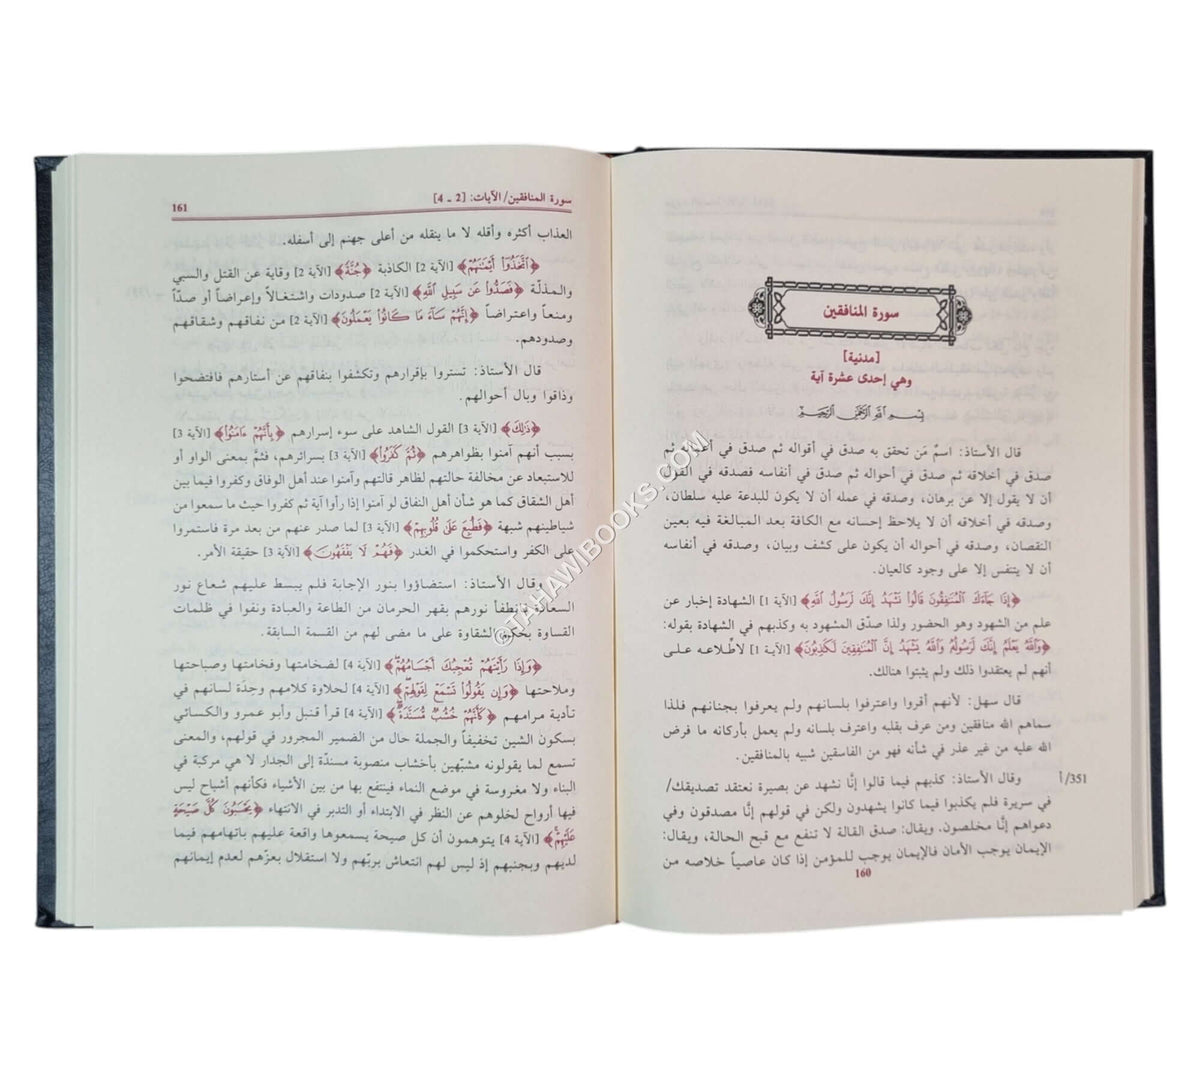 سورة المنافقين
[مدنية]
وهي إحدى عشرة آية
بِسْمِ اللَّهِ الرَّحْمَٰنِ الرَّحِيمِ
قال الأستاذ: اسمُ مَن تحقق به صدق في أقواله ثم صدق في أعماله ثم
صدق في أخلاقه ثم صدق في أحواله ثم صدق في أنفاسه فصدقه في القول
أن لا يقول إلا عن برهان، وصدقه في عمله أن لا يكون للبدعة عليه سلطان،
وصدقه في أخلاقه أن لا يلاحظ إحسانه مع الكافة بعد المبالغة فيه بعين
النقصان، وصدقه في أحواله أن يكون على كشف وبيان، وصدقه في أنفاسه
أن لا يتنفس إلا على وجود كالعيان.
﴿إِذَا جَآءَكَ ٱلْمُنَٰفِقُونَ قَالُوا۟ نَشْهَدُ إِنَّكَ لَرَسُولُ ٱللَّهِ﴾ [الآية 1] الشهادة إخبار عن
علم من الشهود وهو الحضور ولذا صدّق المشهود به وكذبهم في الشهادة بقوله:
﴿وَٱللَّهُ يَعْلَمُ إِنَّكَ لَرَسُولُهُۥ وَٱللَّهُ يَشْهَدُ إِنَّ ٱلْمُنَٰفِقِينَ لَكَٰذِبُونَ﴾ [الآية 1] لاطّلاعه على
أنهم لم يعتقدوا ذلك ولم يثبتوا هنالك.
قال سهل: لأنهم أقروا واعترفوا بلسانهم ولم يعرفوا بجنانهم فلذا
سماهم الله منافقين ومن عرف بقلبه واعترف بلسانه ولم يعمل بأركانه ما فرض
الله عليه من غير عذر في شأنه فهو من الفاسقين شبيه بالمنافقين.
351/أ وقال الأستاذ: كذبهم فيما قالوا إنَّا نشهد عن بصيرة نعتقد تصديقك/
في سريرة فلم يكذبوا فيما كانوا يشهدون ولكن في قولهم إنَّا مصدقون وفي
دعواهم إنَّا مخلصون. ويقال: صدق القالة لا تنفع مع قبح الحالة، ويقال:
الإيمان يوجب الأمان فالإيمان يوجب للمؤمن إذا كان عاصياً خلاصه من
160
سورة المنافقين/ الآيات: [2 - 4] 161
العذاب أكثره وأقله لا ما ينقله من أعلى جهنم إلى أسفله.
﴿ٱتَّخَذُوٓا۟ أَيْمَٰنَهُمْ﴾ [الآية 2] الكاذبة ﴿جُنَّةً﴾ [الآية 2] وقاية عن القتل والسبي
والمذلّة ﴿فَصَدُّوا۟ عَن سَبِيلِ ٱللَّهِ﴾ [الآية 2] صدودات واشتغالاً وإعراضاً أو صدّاً
ومنعاً واعتراضاً ﴿إِنَّهُمْ سَآءَ مَا كَانُوا۟ يَعْمَلُونَ﴾ [الآية 2] من نفاقهم وشقاقهم
وصدودهم.
قال الأستاذ: تستروا بإقرارهم وتكشفوا بنفاقهم عن أستارهم فافتضحوا
وذاقوا وبال أحوالهم.
﴿ذَٰلِكَ﴾ [الآية 3] القول الشاهد على سوء إسرارهم ﴿بِأَنَّهُمْ ءَامَنُوا۟﴾ [الآية 3]
بسبب أنهم آمنوا بظواهرهم ﴿ثُمَّ كَفَرُوا۟﴾ [الآية 3] بسرائرهم، فثمَّ بمعنى الواو أو
للاستبعاد عن مخالفة حالتهم لظاهر قالتهم وآمنوا عند أهل الوفاق وكفروا فيما بين
أهل الشقاق كما هو شأن أهل النفاق لو آمنوا إذا رأوا آية ثم كفروا حيث ما سمعوا من
شياطينهم شبهة ﴿فَطُبِعَ عَلَىٰ قُلُوبِهِمْ﴾ [الآية 3] لما صدر عنهم من بعد مرة فاستمروا
على الكفر واستحكموا في الغدر ﴿فَهُمْ لَا يَفْقَهُونَ﴾ [الآية 3] حقيقة الأمر.
وقال الأستاذ: استضاؤوا بنور الإجابة فلم يبسط عليهم شعاع نور
السعادة فانطفأ نورهم بقهر الحرمان من الطاعة والعبادة وبقوا في ظلمات
القساوة بحكم الشقاوة على ما مضى لهم من القسمة السابقة.
﴿وَإِذَا رَأَيْتَهُمْ تُعْجِبُكَ أَجْسَامُهُمْ﴾ [الآية 4] لضخامتها وفخامتها وصباحتها
وملاحتها ﴿وَإِن يَقُولُوا۟ تَسْمَعْ لِقَوْلِهِمْ﴾ [الآية 4] لحلاوة كلامهم وحِدَة لسانهم في
تأدية مرامهم ﴿كَأَنَّهُمْ خُشُبٌ مُّسَنَّدَةٌ﴾ [الآية 4] قرأ قنبل وأبو عمرو والكسائي
بسكون الشين تخفيفاً والجملة حال من الضمير المجرور في قولهم، والمعنى
تسمع لما يقولونه مشبّهين بأخشاب منصوبة مسندّة إلى الجدار لا هي مركبة في
البناء ولا مغروسة في موضع النماء فينتفع بها من بين الأشياء فكأنهم أشباح ليس
فيها أرواح لخلوهم عن النظر في الابتداء أو التدبر في الانتهاء ﴿يَحْسَبُونَ كُلَّ صَيْحَةٍ
عَلَيْهِمْ﴾ [الآية 4] يتوهمون أن كل صيحة يسمعوها واقعة عليهم باتهامهم فيما
لديهم وبجنبهم إذ ليس لهم انتعاش بربّهم ولا استقلال بعزّهم لعدم إيمانهم
©TAHAWIBOOKS.COM